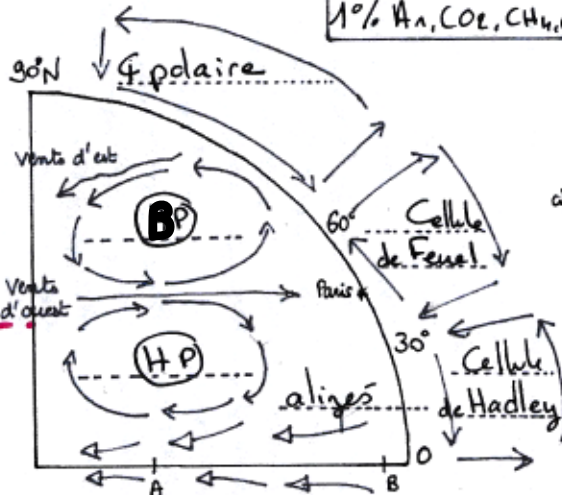 1% An, CO2, CH4,
90°N
₵ polaire
vents d'est
BP
60°
Cellule
de Ferrel
vents
d'ouest
Paris
30°
HP
Cellule
de Hadley
alizés
0
A
B